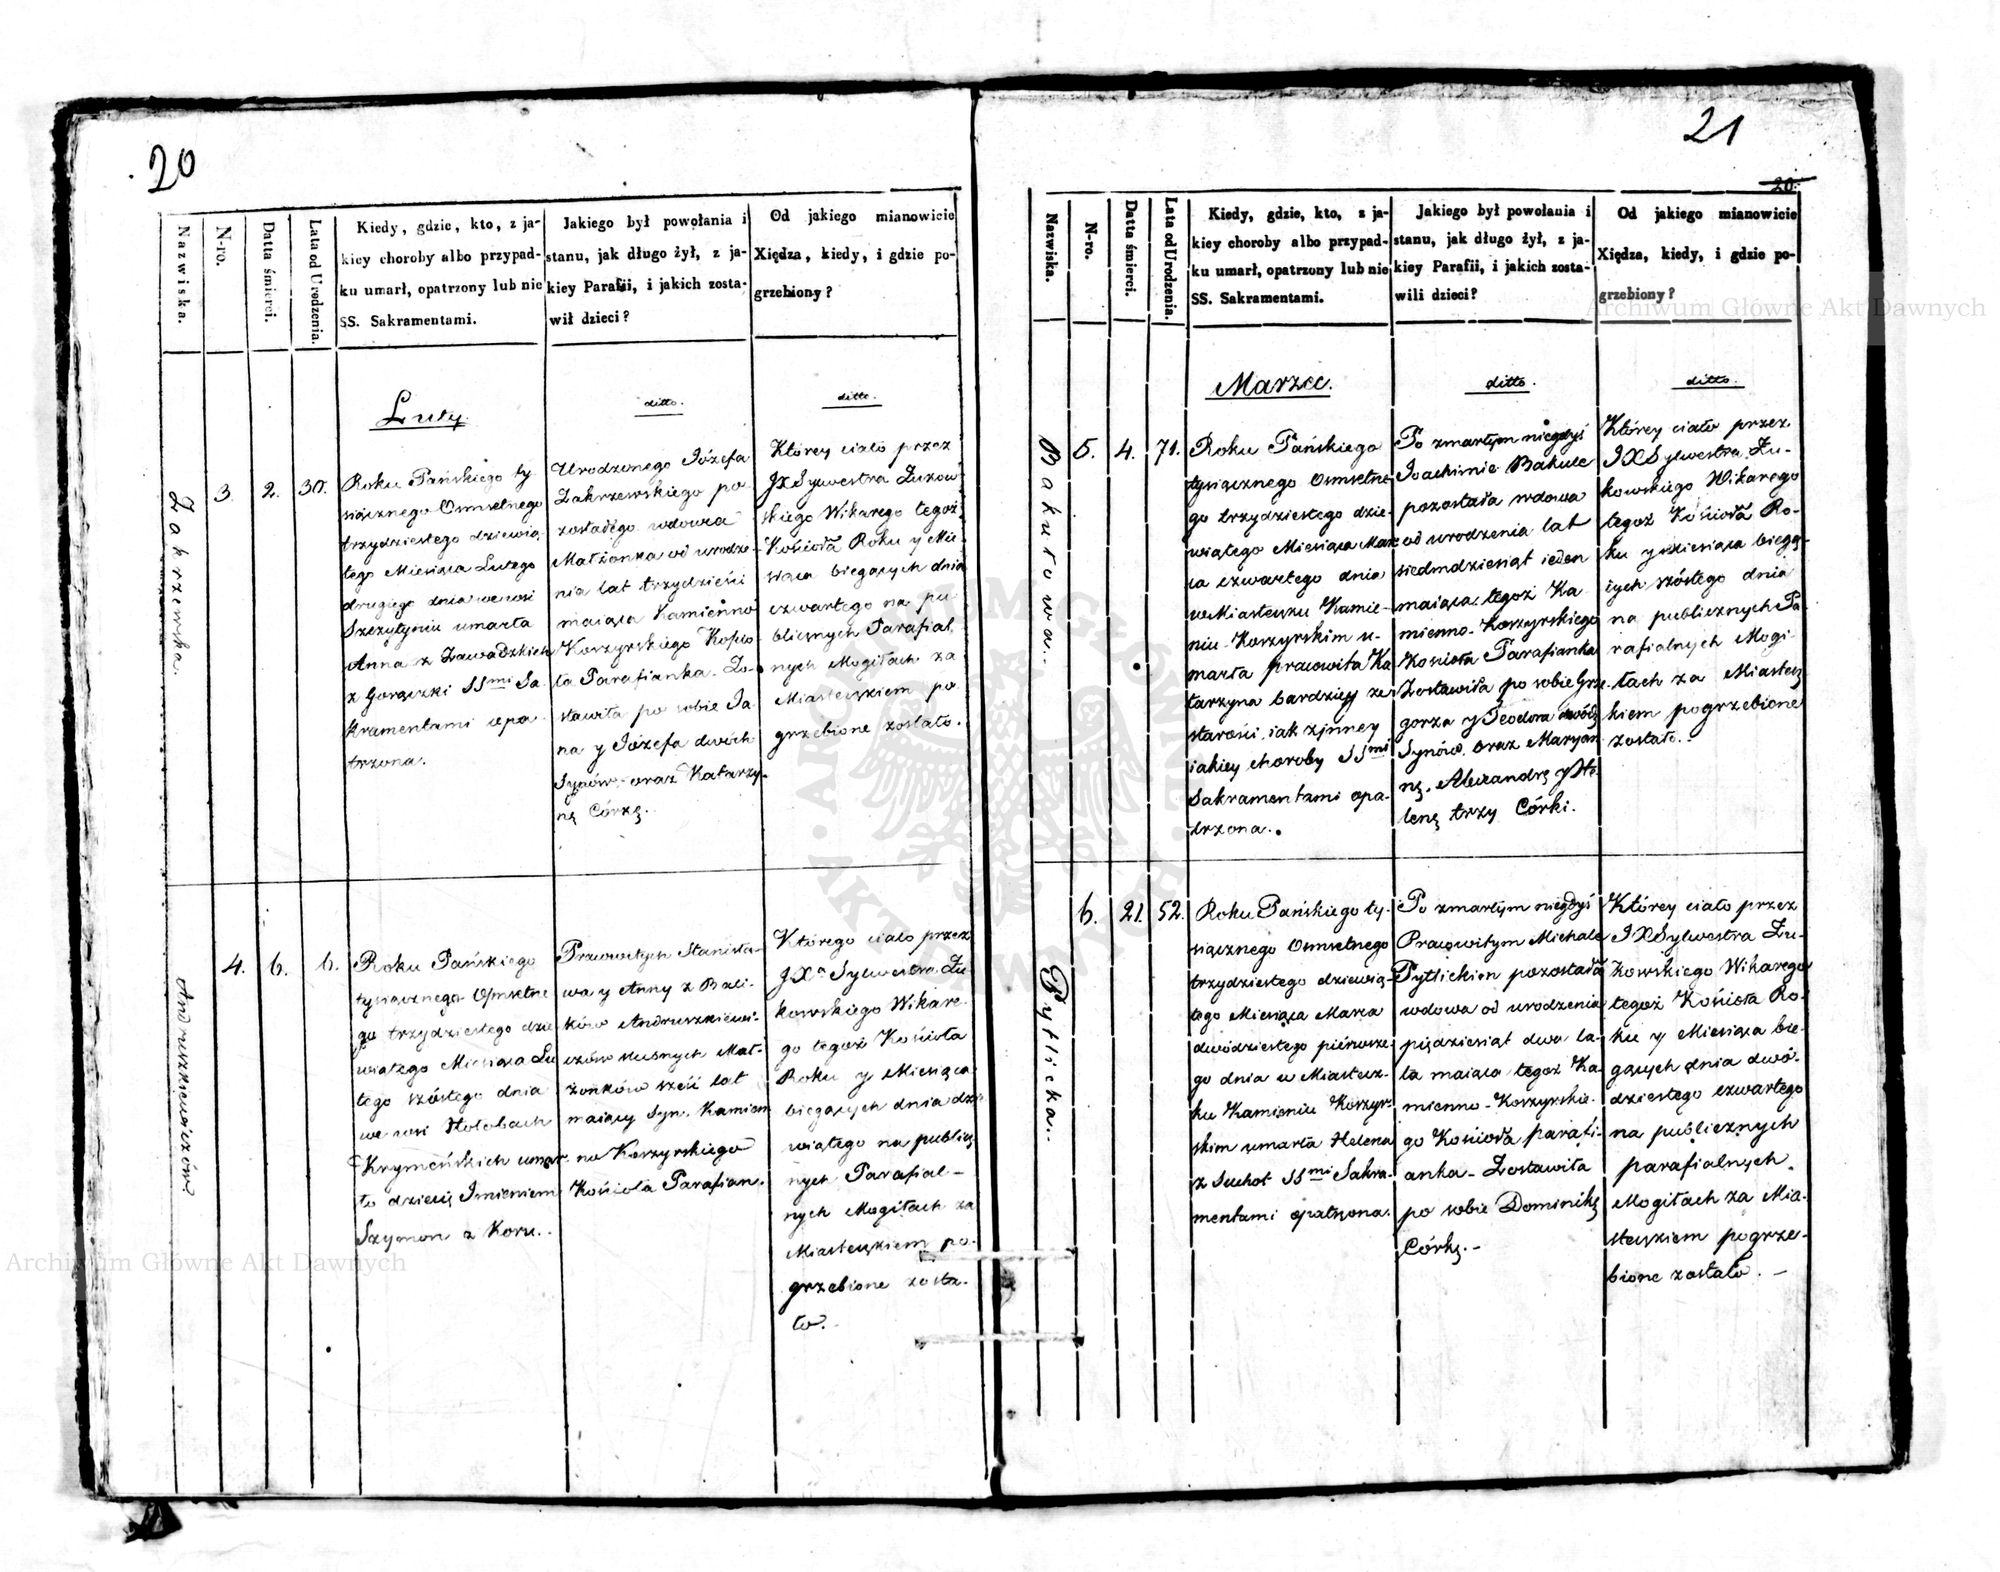 20
Nazwiska.
N-ro.
Datta śmierci.
Lata od Urodzenia.
Kiedy, gdzie, kto, z ja-
kiey choroby albo przypad-
ku umarł, opatrzony lub nie
SS. Sakramentami.
Jakiego był powołania i
stanu, jak długo żył, z ja-
kiey Parafii, i jakich zosta-
wił dzieci?
Od jakiego mianowicie
Xiędza, kiedy, i gdzie po-
grzebiony?
Luty.
ditto.
ditto.
Zakrzewska.
3.
2.
30.
Roku Pańskiego ty-
siącznego Osmsetnego
trzydziestego dziewią-
tego Miesiąca Lutego
drugiego dnia we wsi
Szczytyniu umarła
Anna z Zawadzkich
z Gorączki SSmi Sa-
kramentami opa-
trzona.
Urodzonego Józefa
Zakrzewskiego po-
zostałego wdowca
Małżonka od urodze-
nia lat trzydzieści
maiąca Kamienno
Koszyrskiego Kościo-
ła Parafianka. Zo-
stawiła po sobie Ja-
na y Józefa dwóch
Synów, oraz Katarzy-
nę Córkę.
Którey ciało przez
JX Sylwestra Żukow-
skiego Wikarego tegoż
Kościoła Roku y Mie-
siąca bieżących dnia
czwartego na pu-
blicznych Parafial-
nych Mogiłach za
Miasteczkiem po-
grzebione zostało.
Andruszkiewiczów
4.
6.
6.
Roku Pańskiego
tysiącznego Osmsetne-
go trzydziestego dzie-
wiątego Miesiąca Lu-
tego szóstego dnia
we wsi Hołobach
Krymeńskich umar-
ło dziecię Imieniem
Szymon z Koru..
Pracowitych Stanisła-
wa y Anny z Bali-
ków Andruszkiewi-
czów słusznych Mał-
żonków sześć lat
maiący Syn. Kamien-
no Koszyrskiego
Kościoła Parafian.
Którego ciało przez
JXa Sylwestra Żu-
kowskiego Wikare-
go tegoż Kościoła
Roku y Miesiąca
bieżących dnia dzie-
wiątego na publicz-
nych Parafial-
nych Mogiłach za
Miasteczkiem po-
grzebione zosta-
ło.
21
20.
Nazwiska.
N-ro.
Datta śmierci.
Lata od Urodzenia.
Kiedy, gdzie, kto, z ja-
kiey choroby albo przypad-
ku umarł, opatrzony lub nie
SS. Sakramentami.
Jakiego był powołania i
stanu, jak długo żył, z ja-
kiey Parafii, i jakich zosta-
wili dzieci?
Od jakiego mianowicie
Xiędza, kiedy, i gdzie po-
grzebiony?
Marzec.
ditto.
ditto.
Bakułowa..
5.
4.
71.
Roku Pańskiego
tysiącznego Osmsetne-
go trzydziestego dzie-
wiątego Miesiąca Mar-
ca czwartego dnia
w Miasteczku Kamie-
niu-Koszyrskim u-
marła pracowita Ka-
tarzyna bardziey ze
starości, iak z inney
iakiey choroby SSmi
Sakramentami opa-
trzona..
Po zmarłym niegdyś
Joachimie Bakule
pozostała wdowa
od urodzenia lat
siedmdziesiąt ieden
maiąca, tegoż Ka-
mienno-Koszyrskiego
Kościoła Parafianka
Zostawiła po sobie Grze-
gorza y Teodora dwóch
Synów, oraz Maryan-
nę, Alexandrę y He-
lenę trzy Córki.
Którey ciało przez
JX Sylwestra Żu-
kowskiego Wikarego
tegoż Kościoła Ro-
ku y miesiąca bieżą-
cych szóstego dnia
na publicznych Pa-
rafialnych Mogi-
łach za Miastecz-
kiem pogrzebione
zostało..
Pytlicka..
6.
21.
52.
Roku Pańskiego ty-
siącznego Osmsetnego
trzydziestego dziewią-
tego Miesiąca Marca
dwódziestego pierwsze-
go dnia w Miastecz-
ku Kamieniu Koszyr-
skim umarła Helena
z Suchot SSmi Sakra-
mentami opatrzona.
Po zmarłym niegdyś
Pracowitym Michale
Pytlickim pozostała
wdowa od urodzenia
piędziesiąt dwa la-
ta maiąca tegoż Ka-
mienno-Koszyrskie-
go Kościoła parafi-
anka- Zostawiła
po sobie Dominikę
Córkę.-
Którey ciało przez
JX Sylwestra Żu-
kowskiego Wikarego
tegoż Kościoła Ro-
ku y Miesiąca bie-
żących dnia dwó-
dziestego czwartego
na publicznych
parafialnych
Mogiłach za Mia-
steczkiem pogrze-
bione zostało. -
Archiwum Główne Akt Dawnych
Archiwum Główne Akt Dawnych